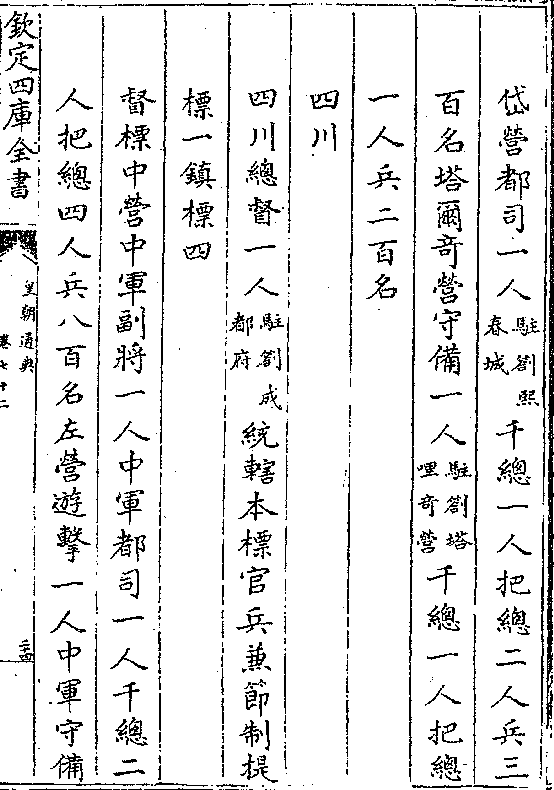 岱營都司一人駐劄熙春城千總一人把總二人兵三
百名塔爾竒營守備一人駐劄塔哩竒營千總一人把總
一人兵二百名
四川
四川總督一人駐劄成都府統轄本標官兵兼節制提
標一鎮標四
督標中營中軍副將一人中軍都司一人千總二
人把總四人兵八百名左營遊擊一人中軍守備
欽定四庫全書
皇朝通典
卷七十二